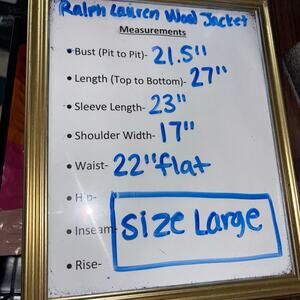 Ralph Lauren Wool Jacket
Measurements
• Bust (Pit to Pit)- 21.5"
• Length (Top to Bottom)- 27"
• Sleeve Length- 23"
• Shoulder Width- 17"
• Waist- 22" flat
• Hip-
• Inseam
size Large
• Rise-